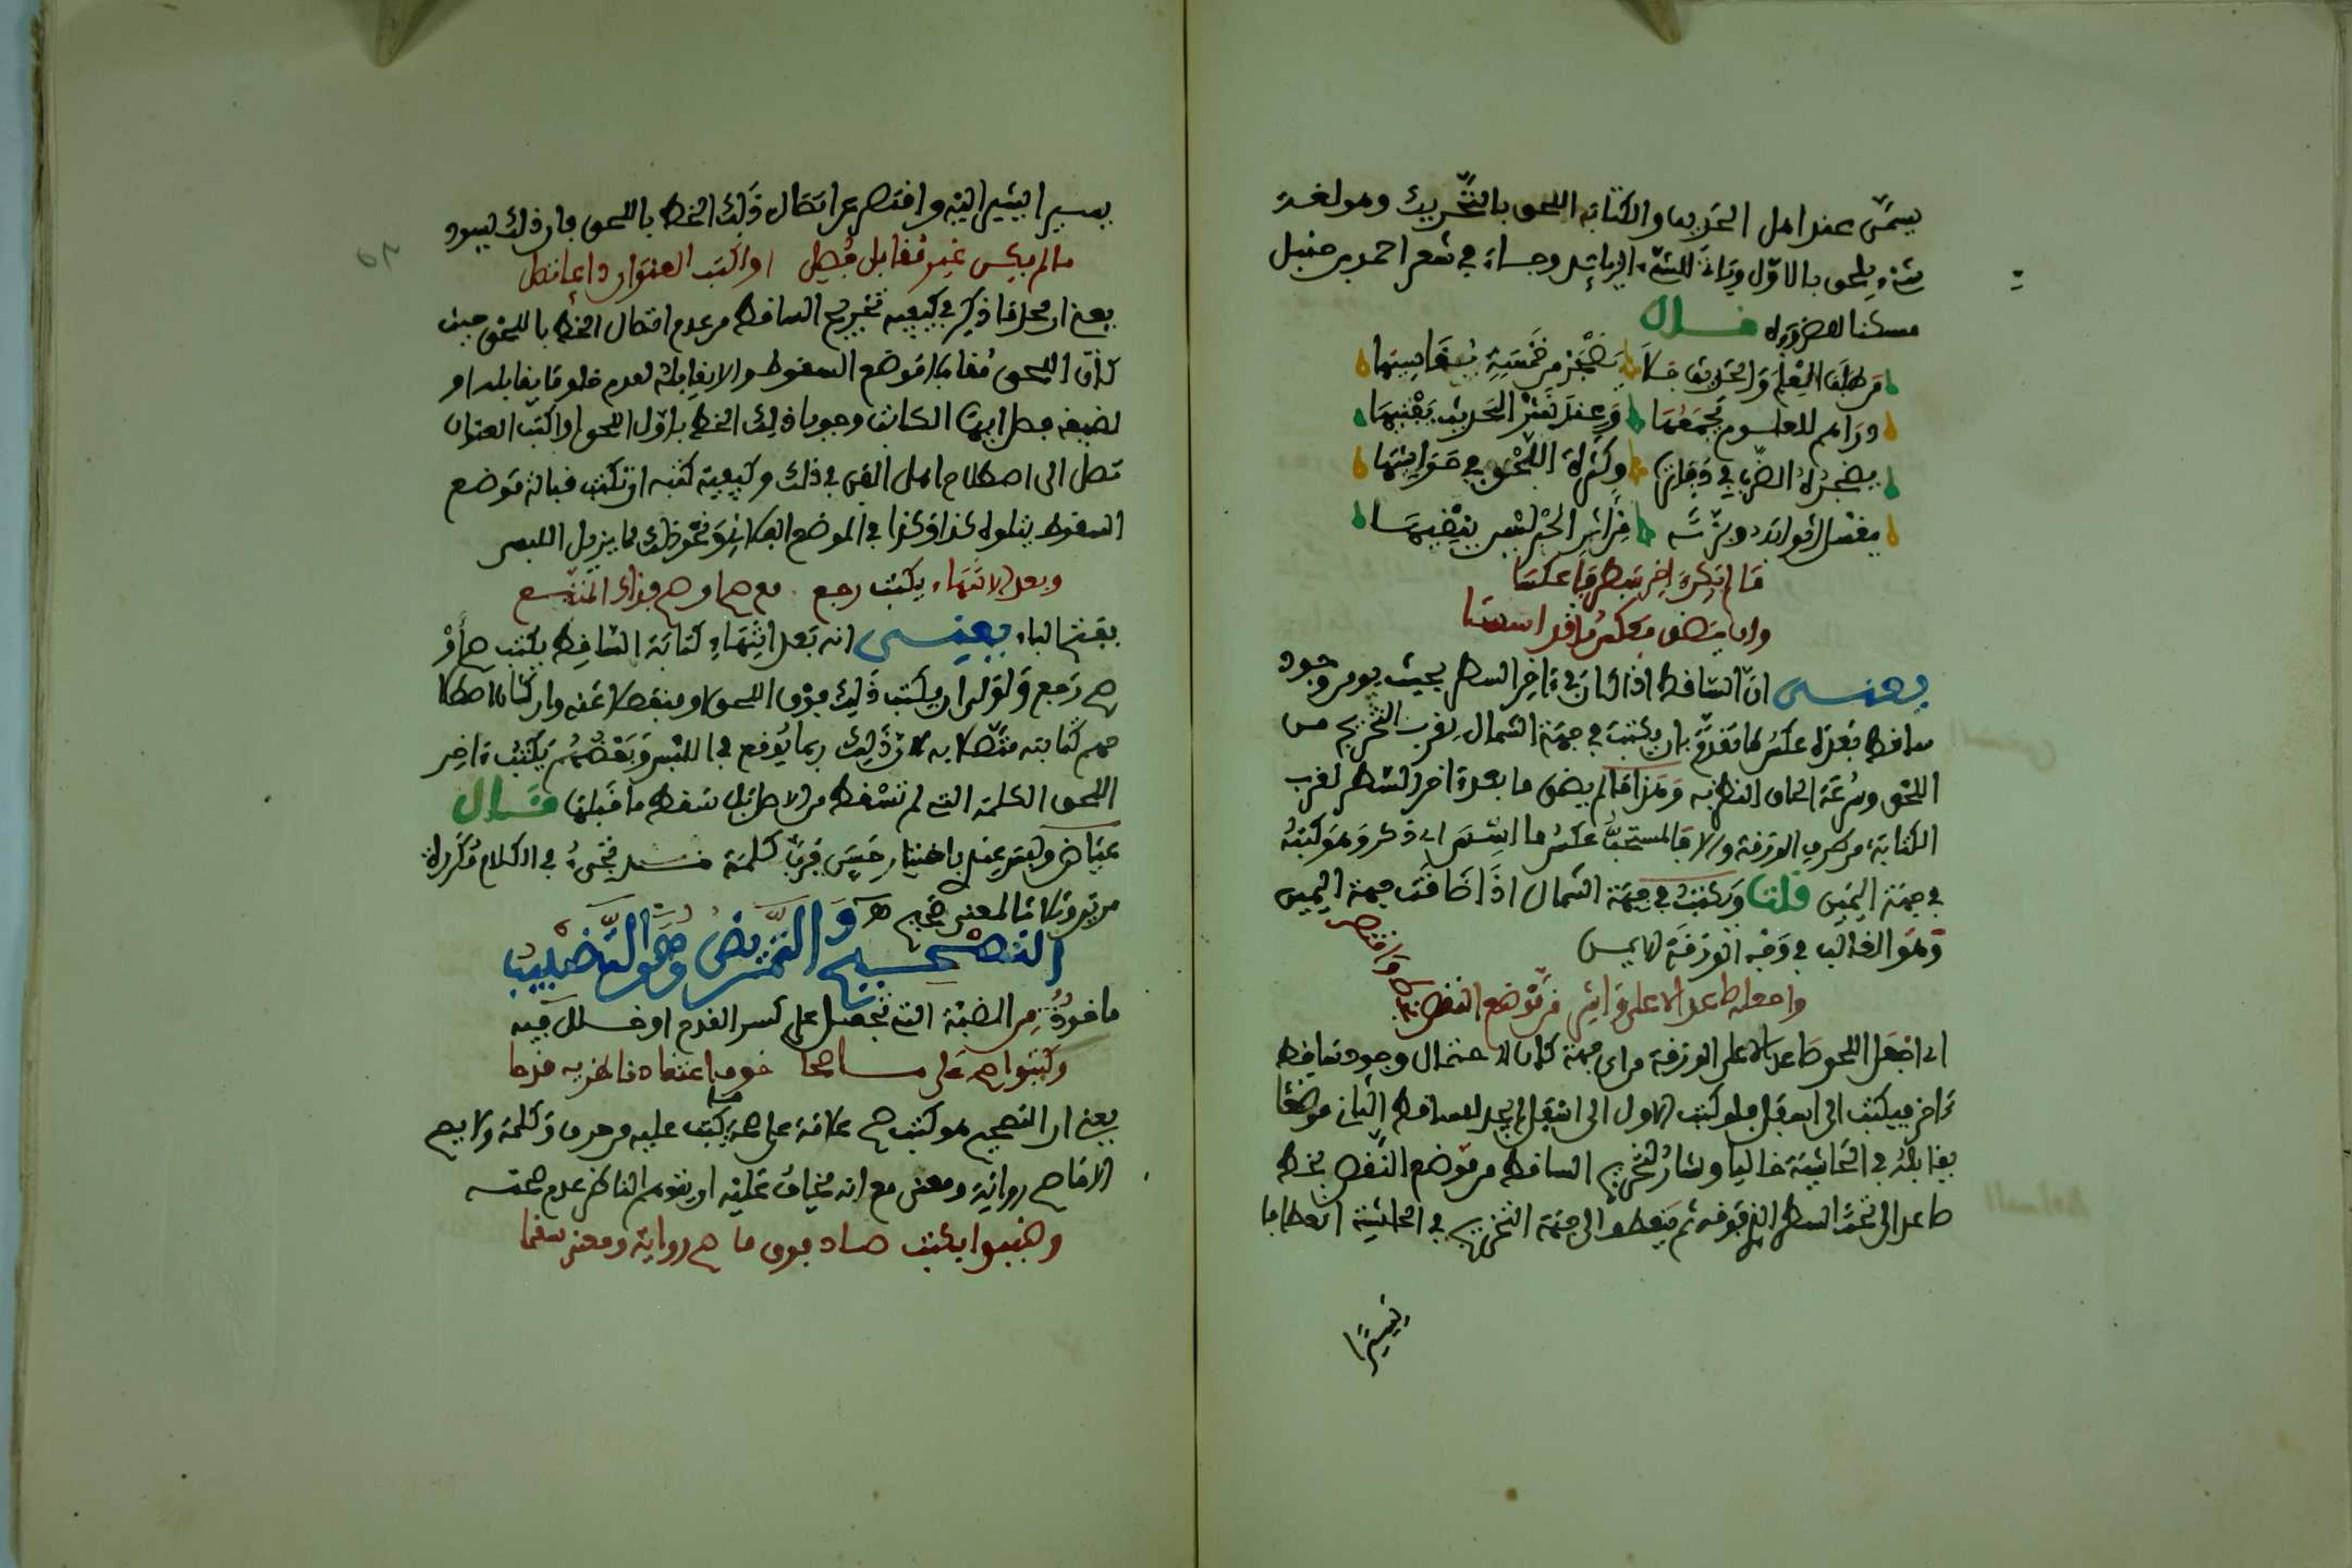 يسمى عند اهل الحديث والكتابة اللحق بالتحريك وهو لغة
شيء يلحق بالاول وايضا للشيء الزائد وجاء في شعر احمد بن حنبل
مسكنا لضرورة قال
من طلب العلم والحديث فلا يضجر من خمسة يقاسيها
دراهم للعلوم يجمعها وعند نشر الحديث يفنيها
يضجره الضرب في دفاتره وكثرة اللحق في حواشيها
يغسل اثوابه وبزته من اثر الحبر ليس ينقيها
ما لم يكن اخر سطر فاعكسا
وان يضق فعكس ما قد اسسا
يعنى ان الساقط اذا كان في ءاخر السطر بحيث يومن وجود
ساقط بعده عكس ما تقدم بان يكتب في جهة الشمال لقرب التخريج من
اللحق وسرعة لحاق النظر به وهذا ما لم يضق ما بعد ءاخر السطر لقرب
الكتابة من طرف الورقة والا فالمستحب عكس ما اسس اي ذكر وهو كتبه
في جهة اليمين قلنا ويكتب في جهة الشمال اذا ضاقت جهة اليمين
وهو الغالب في وجه الورقة الايمن
واجعله صاعدا لاعلى وائت من موضع النقص بخط وافتصر
اي اجعل اللحق صاعدا لاعلى الورقة من اي جهة كان لاحتمال وجود ساقط
ءاخر فيكتب الى اسفل فلو كتب الاول الى اسفل لم يجد للساقط الثاني موضعا
يقابله في الحاشية خاليا وشار لتخريج الساقط من موضع النقص بخط
صاعد الى تحت السطر الذي فوقه ثم ينعطف الى جهة التخريج في الحاشية انعطافا
يسيرا
يسيرا ليشير اليه وافتصر عن اتصال ذلك الخط باللحق فان ذلك تسويد
ما لم يكن غير مقابل فصل او اكتب العنوان
يعنى ان محل ما ذكر في كيفية تخريج الساقط من عدم اتصال الخط باللحق حيث
كان اللحق مقابلا لموضع السقوط والا يقابله لعدم خلو ما يقابله او
لضيقه فصل ايها الكاتب وجوبا ذلك الخط باول اللحق او اكتب العنوان
تصل الى اصطلاح اهل الفن في ذلك وكيفية كتبه ان تكتب قبالة موضع
السقوط يتلوه كذا وكذا في الموضع الفلاني ونحو ذلك مما يزيل اللبس
وبعد الانتهاء يكتب رجع مع صح او صح
بفتح الباء يعنى انه بعد انتهاء كتابة الساقط يكتب صح او
صح رجع والاولى ان يكتب ذلك فوق اللحق او منفصلا عنه وان كان اصطلا
حهم كتابته متصلا به لان ذلك ربما يوقع في اللبس وبعضهم يكتب ءاخر
اللحق الكلمة التي لم تسقط من الاصل بل سقط ما قبلها قال
عياض وليس عندي باختيار حسن فرب كلمة قد تجيء في الكلام مكررة
مرتين وثلاثا لمعنى صحيح
التصحيح والتمريض وهو التضبيب
ماخوذ من الضبة التي تجعل على كسر القدح او خلل فيه
وكتبوا صح على
يعنى ان التصحيح هو كتب صح علامة على صحة ما كتب عليه من حرف وكلمة ولا يصح
الا ما صح رواية ومعنى مع انه يخاف عليه ان يتوهم الناظر عدم صحته
وضببوا بكتب صاد فوق ما صح رواية ومعنى سقما